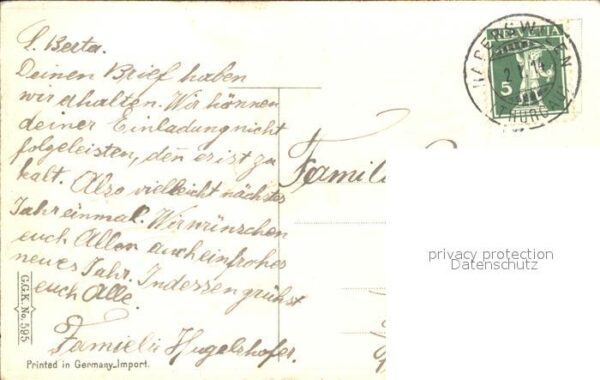 L. Berta.
Deinen Brief haben
wir erhalten. Wir können
deiner Einladung nicht
folgeleisten, den es ist zu
kalt. Also vielleicht nächstes
Jahr einmal. Wir wünschen
euch Allen auch ein frohes
neues Jahr. Indessen grühst
euch Alle.
Famielie Hugelshofer.
G.G.K. No. 595
Printed in Germany-Import.
HELVETIA
5
THURGAU
Famili
privacy protection
Datenschutz